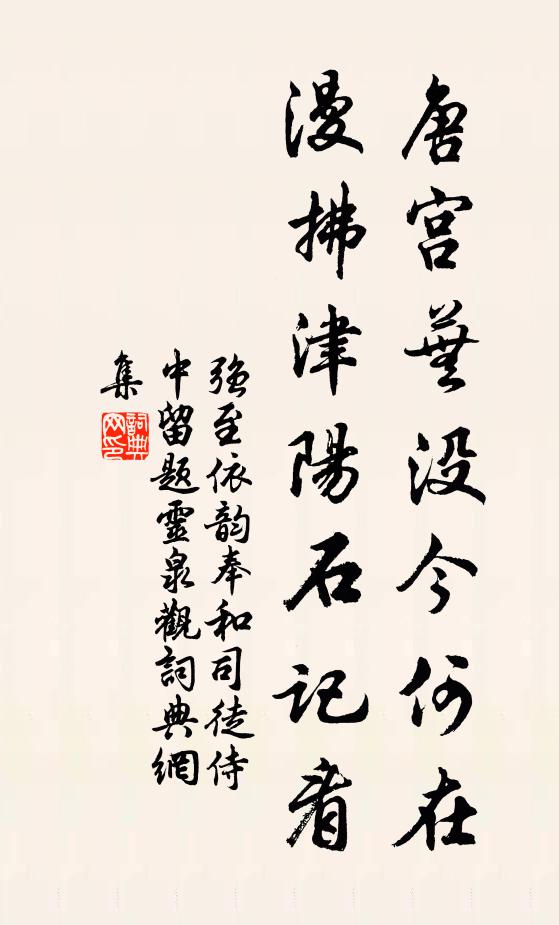 唐宫芜没今何在
漫拂津陽石记看
强至依韵奉和司徒侍
中留题靈泉觀詞典網
集
詞典
网印